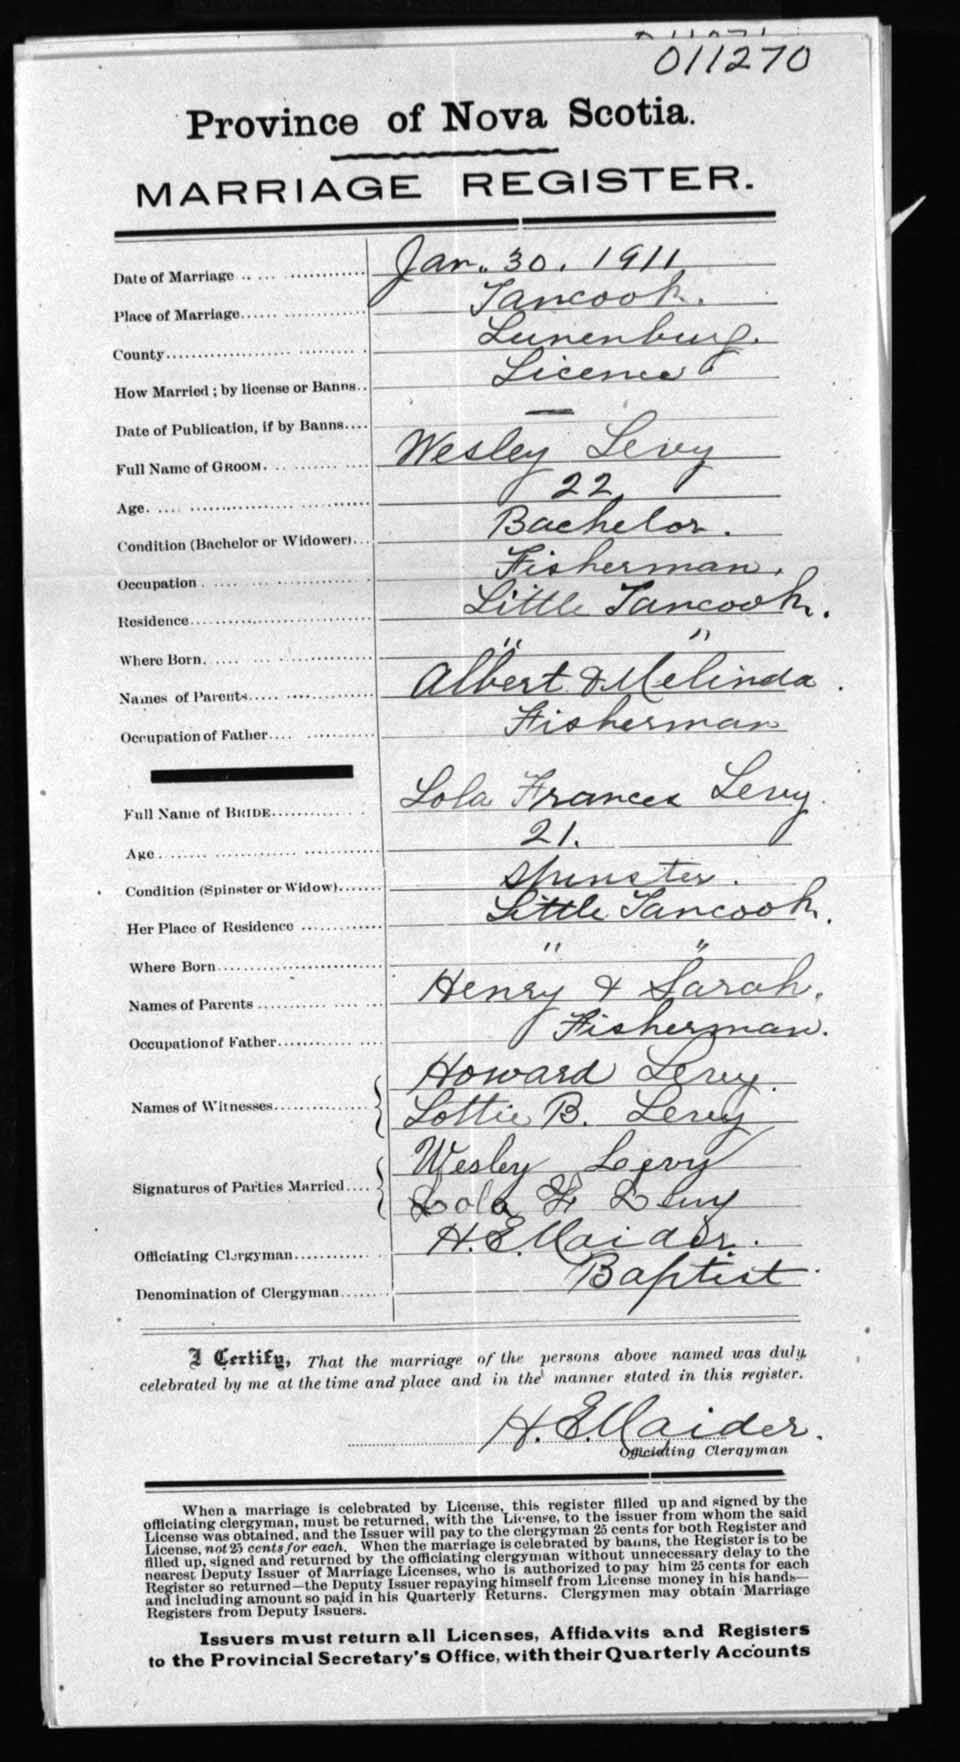 011270
Province of Nova Scotia.
MARRIAGE REGISTER.
Date of Marriage Jan. 30. 1911
Place of Marriage Tancook.
County Lunenburg.
How Married; by license or Banns Licence
Date of Publication, if by Banns —
Full Name of GROOM Wesley Levy
Age 22
Condition (Bachelor or Widower) Bachelor.
Occupation Fisherman.
Residence Little Tancook.
Where Born " "
Names of Parents Albert & Melinda.
Occupation of Father Fisherman
Full Name of BRIDE Lola Frances Levy.
Age 21.
Condition (Spinster or Widow) Spinster.
Her Place of Residence Little Tancook.
Where Born " "
Names of Parents Henry & Sarah.
Occupation of Father Fisherman.
Names of Witnesses Howard Levy.
Lottie B. Levy
Signatures of Parties Married Wesley Levy
Lola F Levy
Officiating Clergyman H. E. Maider.
Denomination of Clergyman Baptist.
I Certify, That the marriage of the persons above named was duly
celebrated by me at the time and place and in the manner stated in this register.
H. E. Maider.
Officiating Clergyman
When a marriage is celebrated by License, this register filled up and signed by the
officiating clergyman, must be returned, with the License, to the issuer from whom the said
License was obtained, and the Issuer will pay to the clergyman 25 cents for both Register and
License, not 25 cents for each. When the marriage is celebrated by banns, the Register is to be
filled up, signed and returned by the officiating clergyman without unnecessary delay to the
nearest Deputy Issuer of Marriage Licenses, who is authorized to pay him 25 cents for each
Register so returned—the Deputy Issuer repaying himself from License money in his hands—
and including amount so paid in his Quarterly Returns. Clergymen may obtain Marriage
Registers from Deputy Issuers.
Issuers must return all Licenses, Affidavits and Registers
to the Provincial Secretary's Office, with their Quarterly Accounts